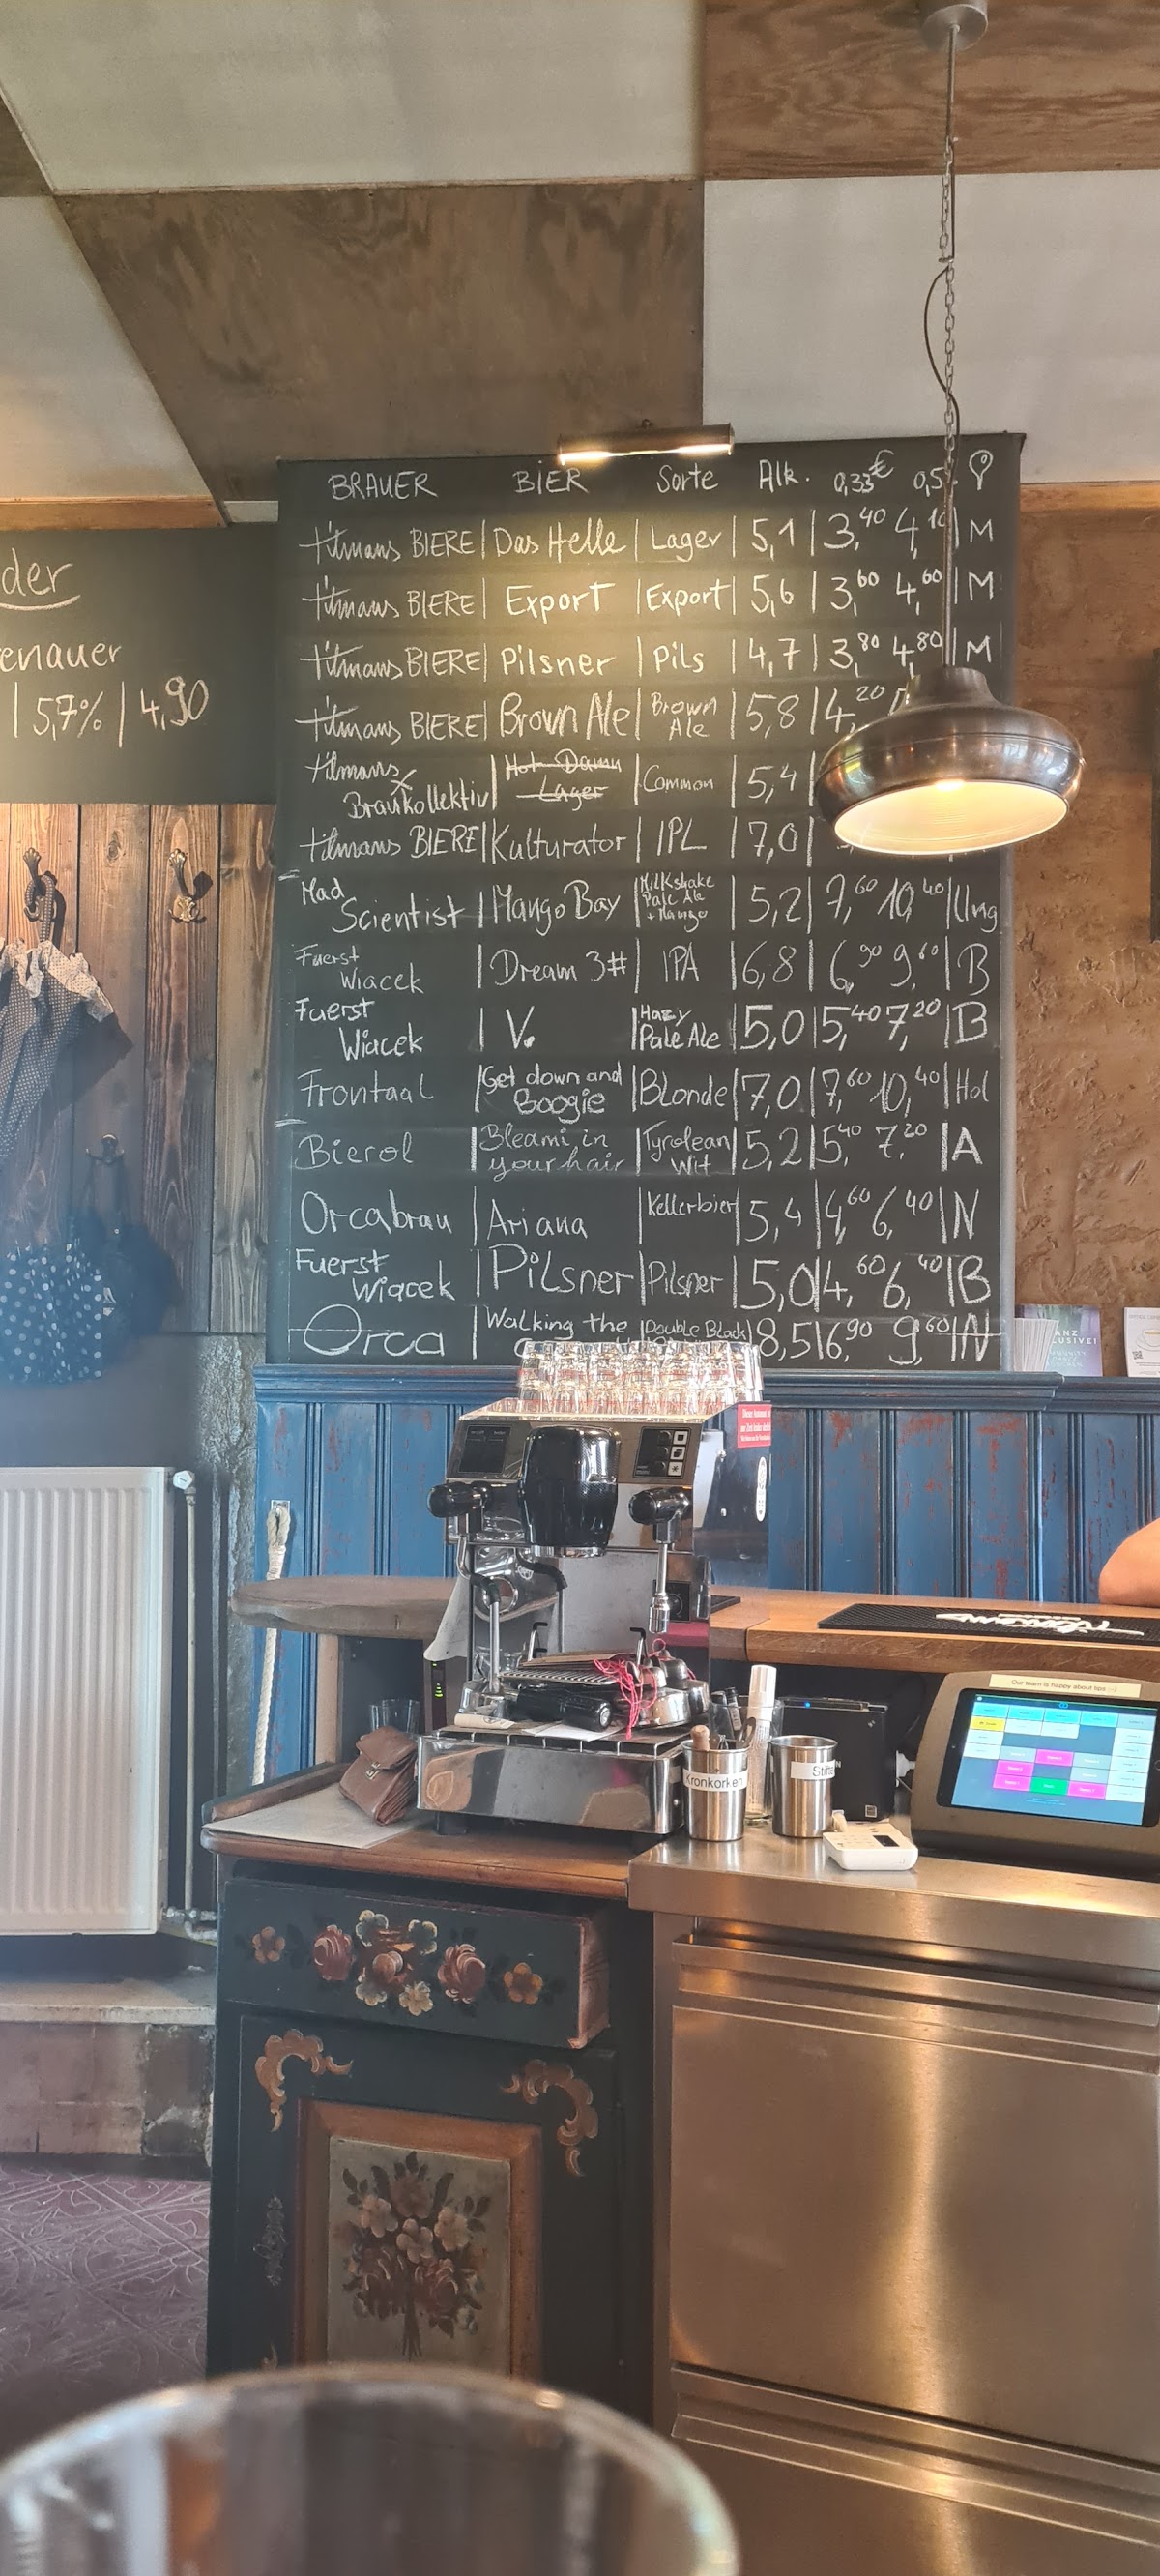 BRAUER BIER Sorte Alk. 0,33€ 0,5
tilmans BIERE | Das Helle | Lager | 5,1 | 3,40 4,10 | M
tilmans BIERE | Export | Export | 5,6 | 3,60 4,60 | M
tilmans BIERE | Pilsner | Pils | 4,7 | 3,80 4,80 | M
tilmans BIERE | Brown Ale | Brown Ale | 5,8 | 4,20
tilmans x Braukollektiv | Hot Damn Lager | Common | 5,4 |
tilmans BIERE | Kulturator | IPL | 7,0 |
Mad Scientist | Mango Bay | Milkshake Pale Ale + Mango | 5,2 | 7,60 10,40 | Ung
Fuerst Wiacek | Dream 3# | IPA | 6,8 | 6,90 9,60 | B
Fuerst Wiacek | V. | Hazy Pale Ale | 5,0 | 5,40 7,20 | B
Frontaal | Get down and Boogie | Blonde | 7,0 | 7,60 10,40 | Hol
Bierol | Bleami in your hair | Tyrolean Wit | 5,2 | 5,40 7,20 | A
Orcabrau | Ariana | Kellerbier | 5,4 | 4,60 6,40 | N
Fuerst Wiacek | Pilsner | Pilsner | 5,0 | 4,60 6,40 | B
Orca | Walking the | Double Black | 8,5 | 6,90 9,60 | N
der
enauer
| 5,7% | 4,90
Our team is happy about tips :-)
Kronkorken